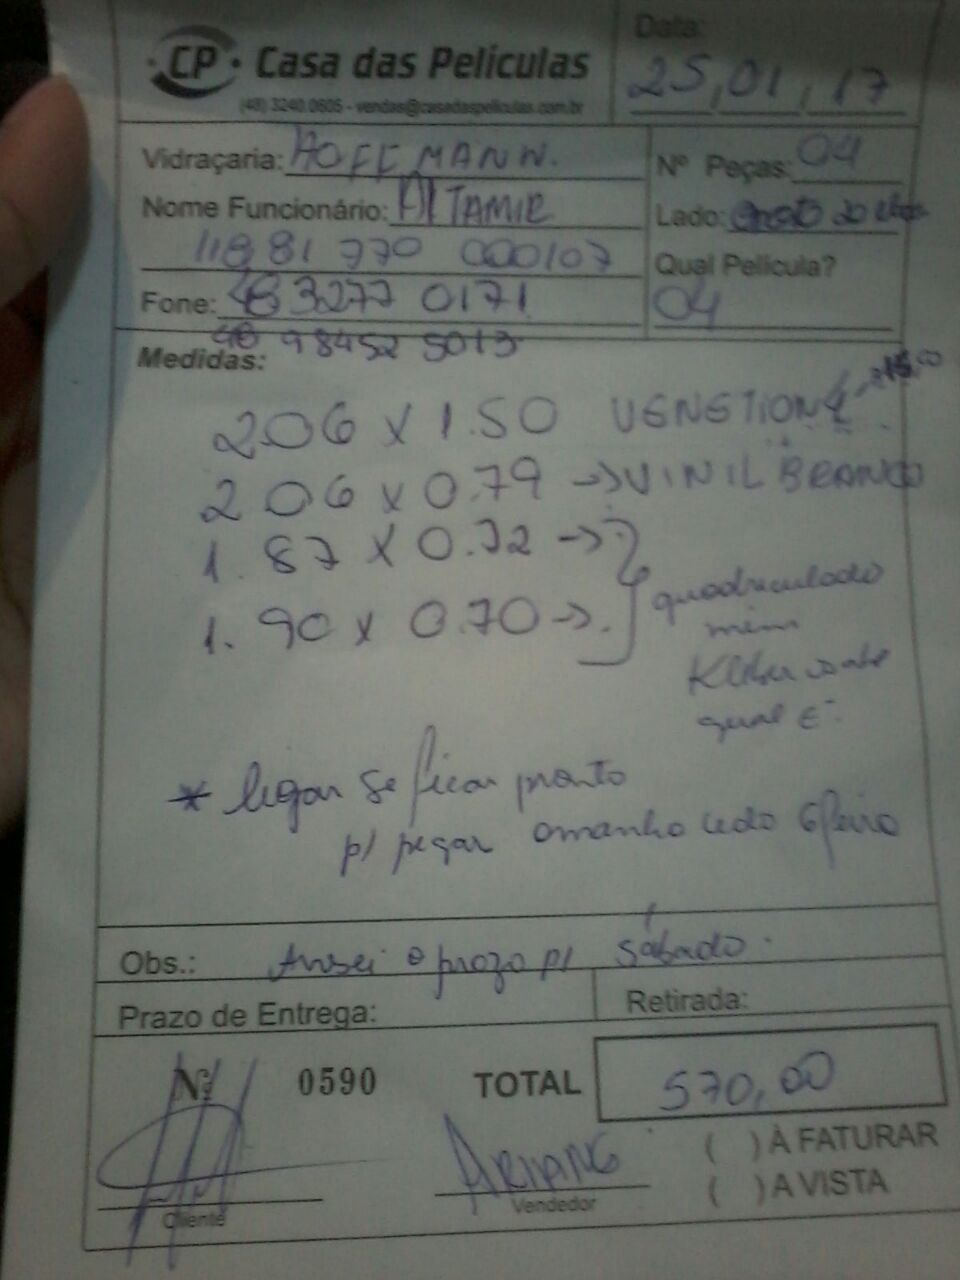 CP Casa das Películas
(48) 3240.0605 - vendas@casadaspeliculas.com.br
Data:
25, 01, 17
Vidraçaria: HOFFMANN.
Nº Peças: 04
Nome Funcionário: ALTAMIR
Lado:
11881770 000107
Qual Película?
04
Fone: 48 3277 0171
48 98452 5013
Medidas:
2.06 x 1.50 VENETION
2.06 x 0.79 → VINIL BRANCO
1.87 x 0.72 →
1.90 x 0.70 →
quadriculado
mini
Kleber sabe
qual é.
* ligar se ficar pronto
p/ pegar amanha cedo 6feira
Obs.: Avisei o prazo p/ sábado.
Prazo de Entrega:
Retirada:
Nº 0590
TOTAL 570,00
( ) À FATURAR
( ) A VISTA
Cliente
ARIANE
Vendedor